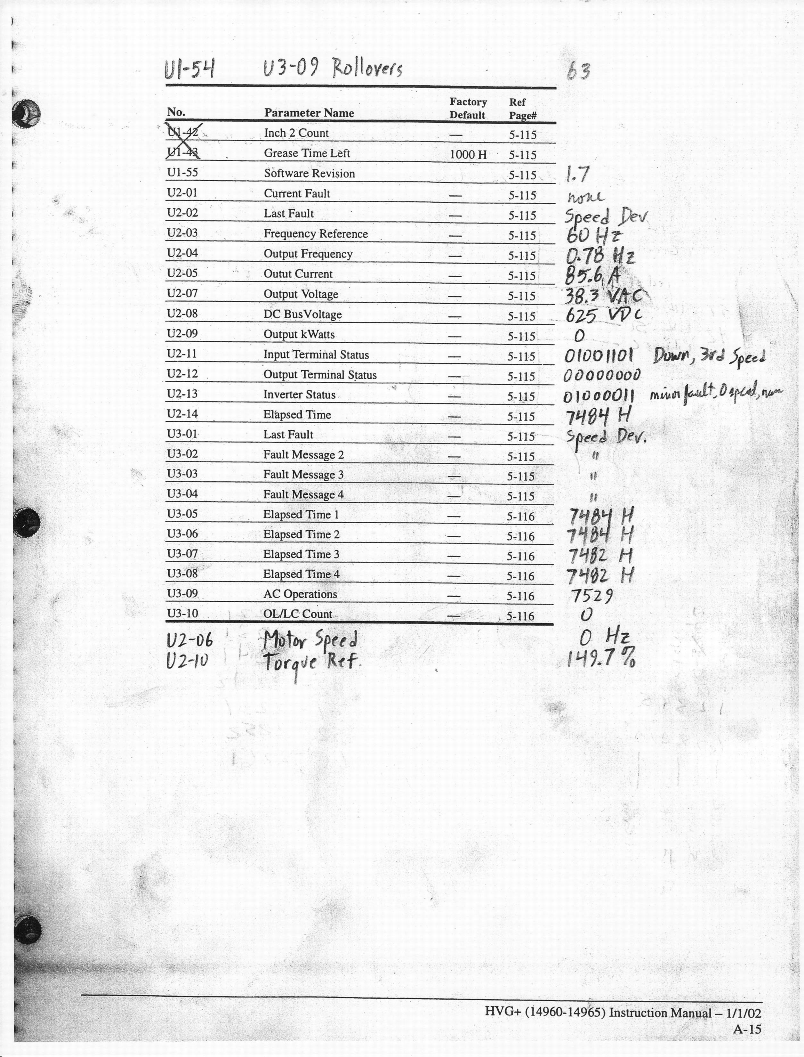 U1-54 U3-09 Rollovers 63
No. Parameter Name Factory Default Ref Page#
U1-42 Inch 2 Count — 5-115
U1-43 Grease Time Left 1000 H 5-115
U1-55 Software Revision 5-115 1.7
U2-01 Current Fault — 5-115 none
U2-02 Last Fault — 5-115 Speed Dev
U2-03 Frequency Reference — 5-115 60 Hz
U2-04 Output Frequency — 5-115 0.78 Hz
U2-05 Outut Current — 5-115 85.6 A
U2-07 Output Voltage — 5-115 38.3 VAC
U2-08 DC BusVoltage — 5-115 625 VDC
U2-09 Output kWatts — 5-115 0
U2-11 Input Terminal Status — 5-115 01001101 Down, 3rd Speed
U2-12 Output Terminal Status — 5-115 00000000
U2-13 Inverter Status — 5-115 01000011 minor fault, 0 speed, run
U2-14 Elapsed Time — 5-115 7484 H
U3-01 Last Fault — 5-115 Speed Dev.
U3-02 Fault Message 2 — 5-115 "
U3-03 Fault Message 3 — 5-115 "
U3-04 Fault Message 4 — 5-115 "
U3-05 Elapsed Time 1 — 5-116 7484 H
U3-06 Elapsed Time 2 — 5-116 7484 H
U3-07 Elapsed Time 3 — 5-116 7482 H
U3-08 Elapsed Time 4 — 5-116 7482 H
U3-09 AC Operations — 5-116 7529
U3-10 OL/LC Count — 5-116 0
U2-06 Motor Speed 0 Hz
U2-10 Torque Ref. 149.7 %
HVG+ (14960-14965) Instruction Manual – 1/1/02
A-15